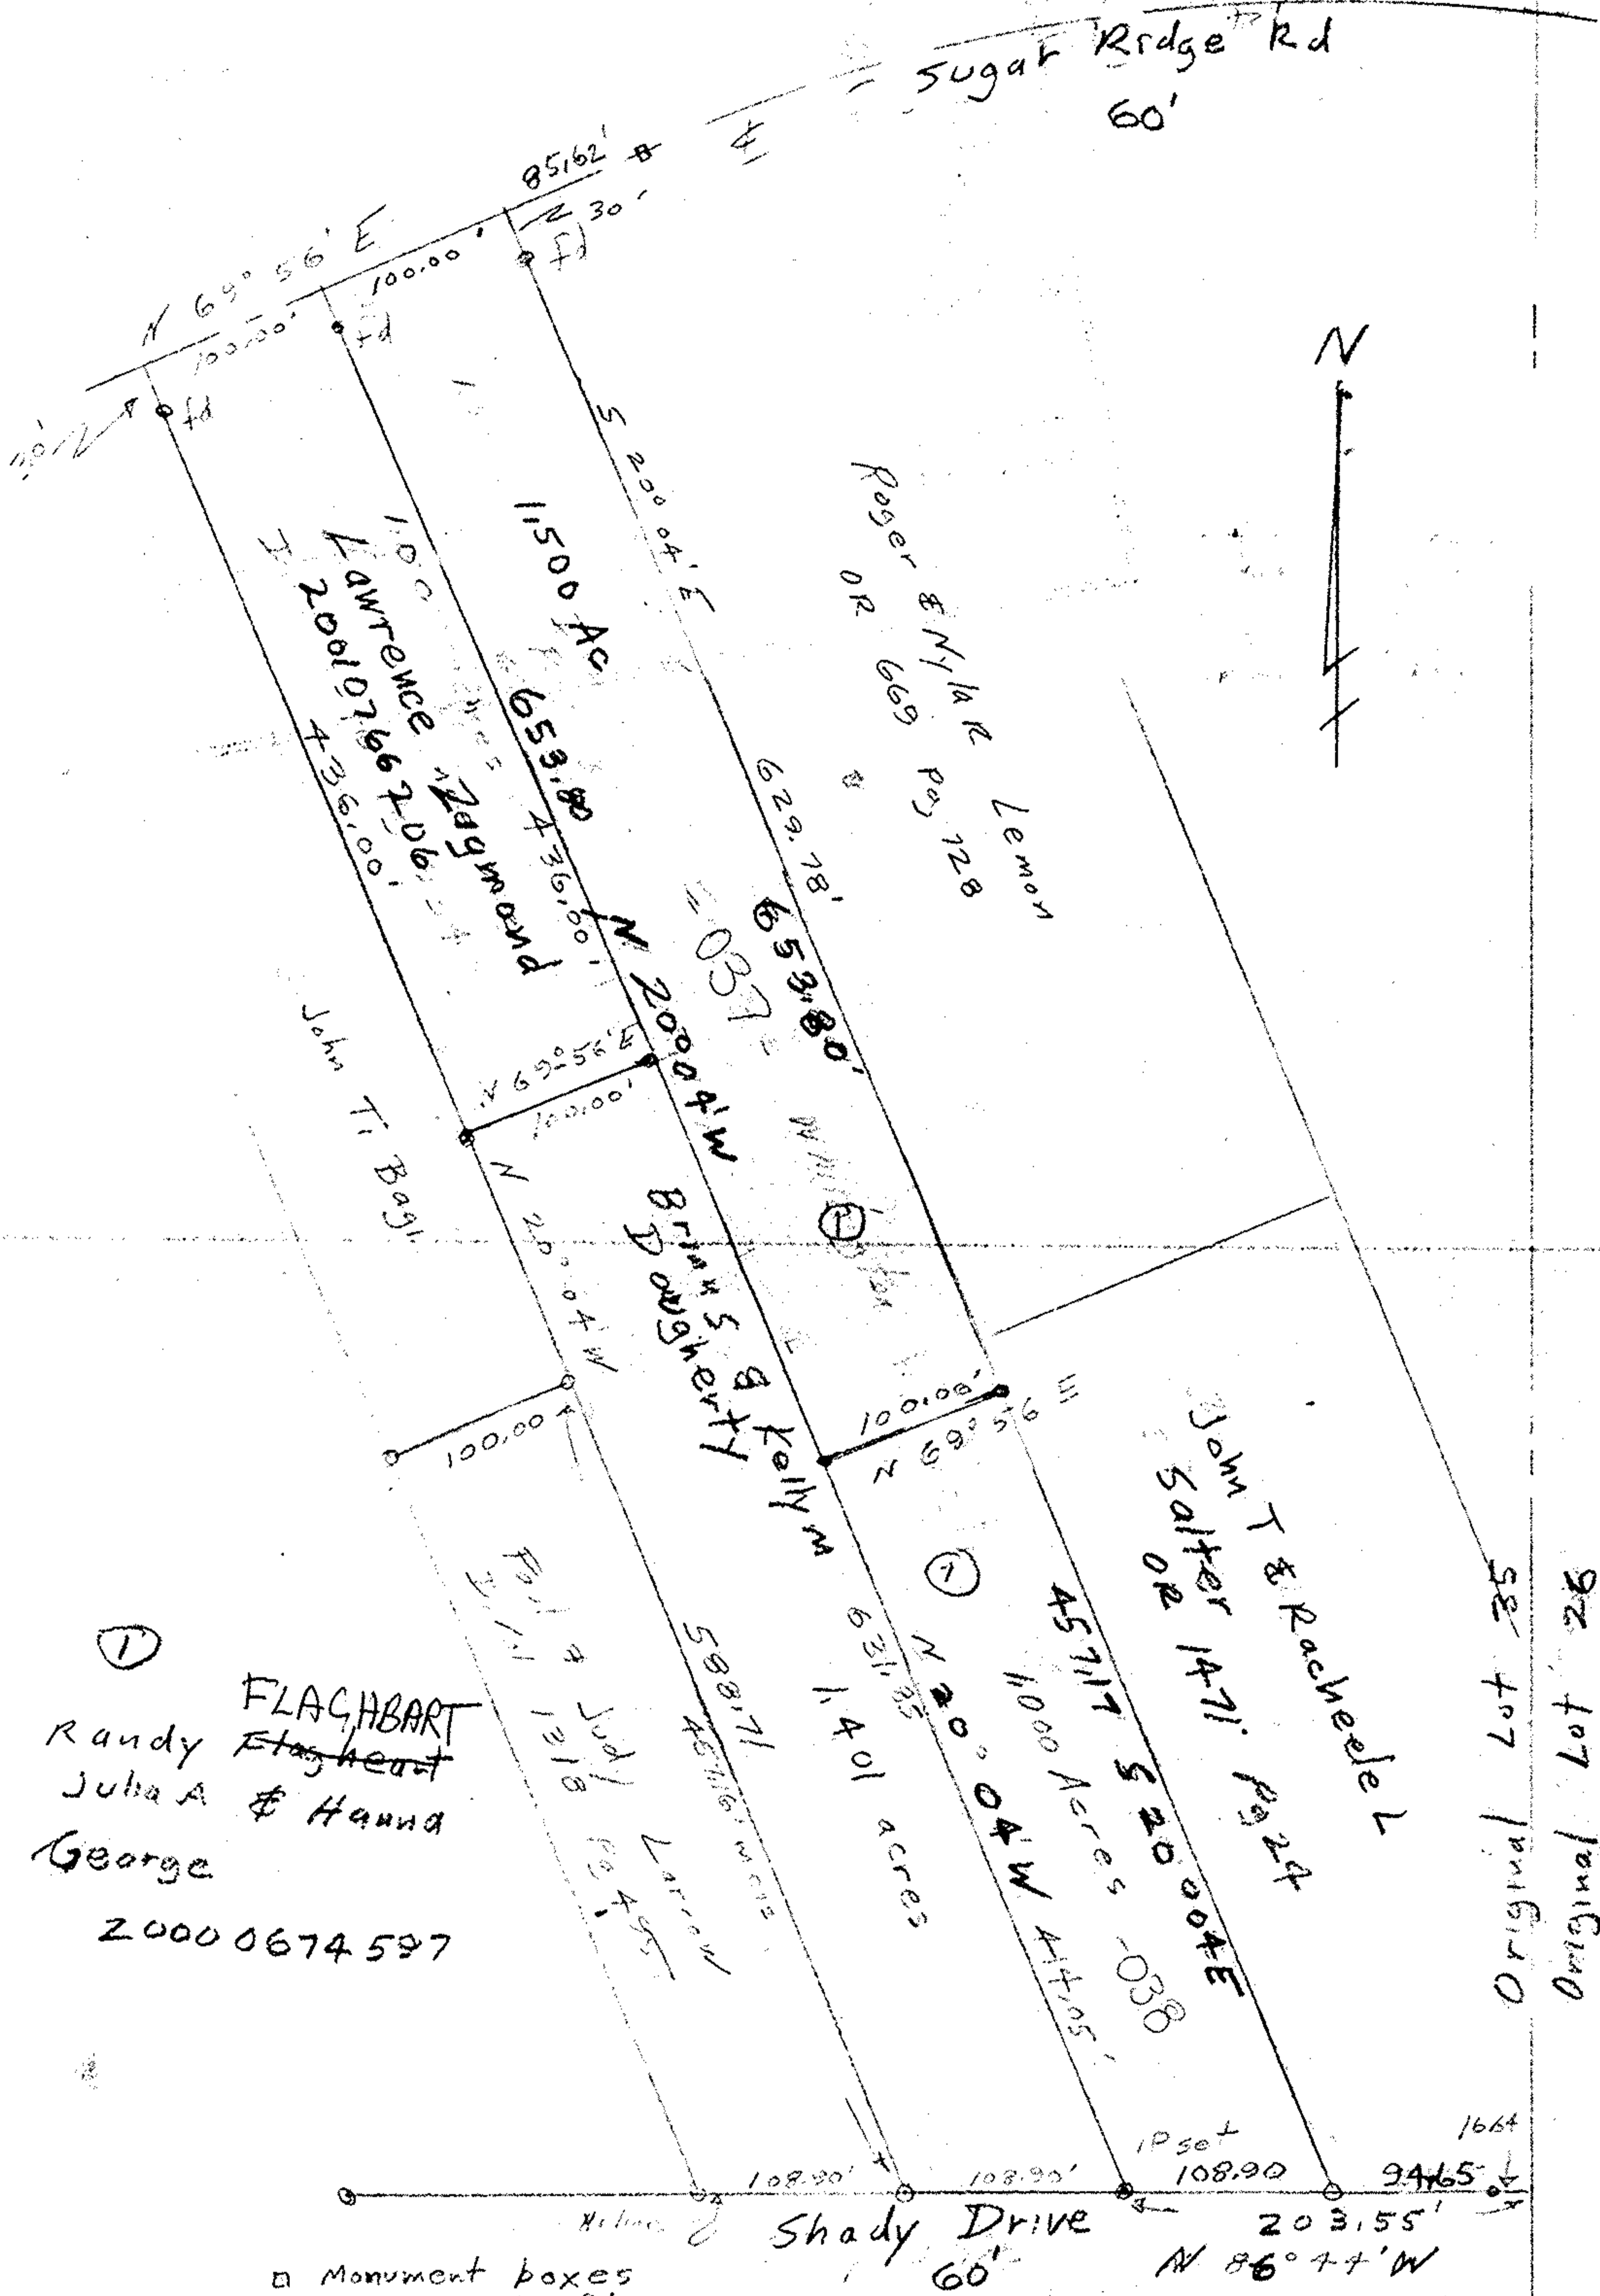 Sugar Ridge Rd
60'
85.62'
30'
N 69° 56' E
100.00'
100.00'
fd
fd
fd
N
S 20° 04' E
629.78'
653.80'
Roger & Nyla R Lemon
OR 669 Pag 728
1.500 Ac
653.80
N 20° 04' W
436.00'
Lawrence Zagmond
200107667206
436.00'
-037
N 69° 56' E
100.00'
John T. Bagl.
N 20° 04' W
Brian S & Kelly M
Dougherty
1
100.00'
N 69° 56 E
100.00
John T & Racheele L
Salter
OR 1471 Pg 24
1
457.17 S 20° 04 E
1.000 Acres -038
N 20° 04' W 444.05'
631.85
1.401 acres
588.71
Judy Larron
1318 Pg 495
Original Lot 35
Original Lot 26
1
FLAGHBART
Randy Flagheart
Julia A & Hanna
George
20000674587
1664
IP set
108.90'
108.90'
108.90
94.65
Shady Drive
60'
203.55'
N 86° 44' W
Monument boxes